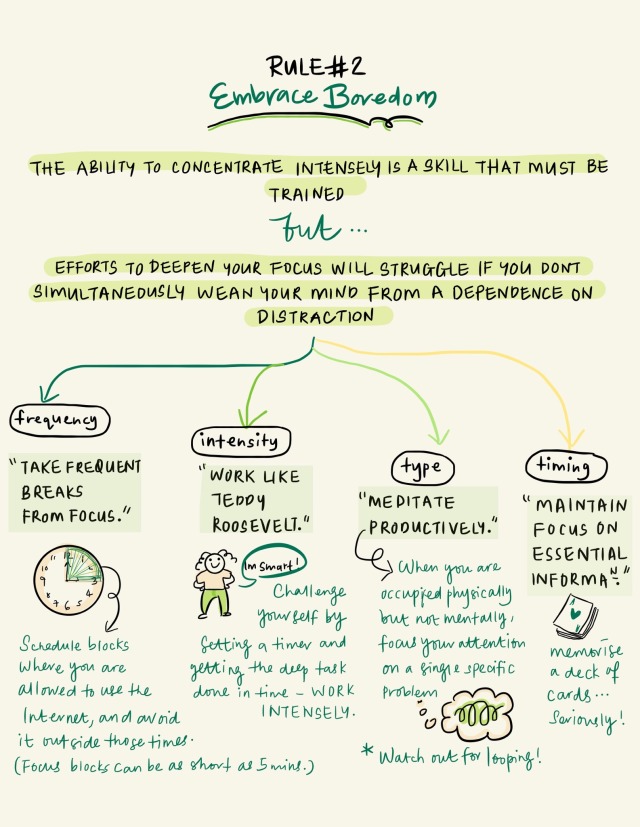 RULE#2
Embrace Boredom
THE ABILITY TO CONCENTRATE INTENSELY IS A SKILL THAT MUST BE
TRAINED
but ...
EFFORTS TO DEEPEN YOUR FOCUS WILL STRUGGLE IF YOU DONT
SIMULTANEOUSLY WEAN YOUR MIND FROM A DEPENDENCE ON
DISTRACTION
frequency
"TAKE FREQUENT
BREAKS
FROM FOCUS."
Schedule blocks
where you are
allowed to use the
Internet, and avoid
it outside those times.
(Focus blocks can be as short as 5 mins.)
intensity
"WORK LIKE
TEDDY
ROOSEVELT."
Im smart!
Challenge
yourself by
setting a timer and
getting the deep task
done in time - WORK
INTENSELY.
type
"MEDITATE
PRODUCTIVELY."
When you are
occupied physically
but not mentally,
focus your attention
on a single specific
problem
* Watch out for looping!
timing
"MAINTAIN
FOCUS ON
ESSENTIAL
INFORMA
memorise
a deck of
cards...
Seriously!